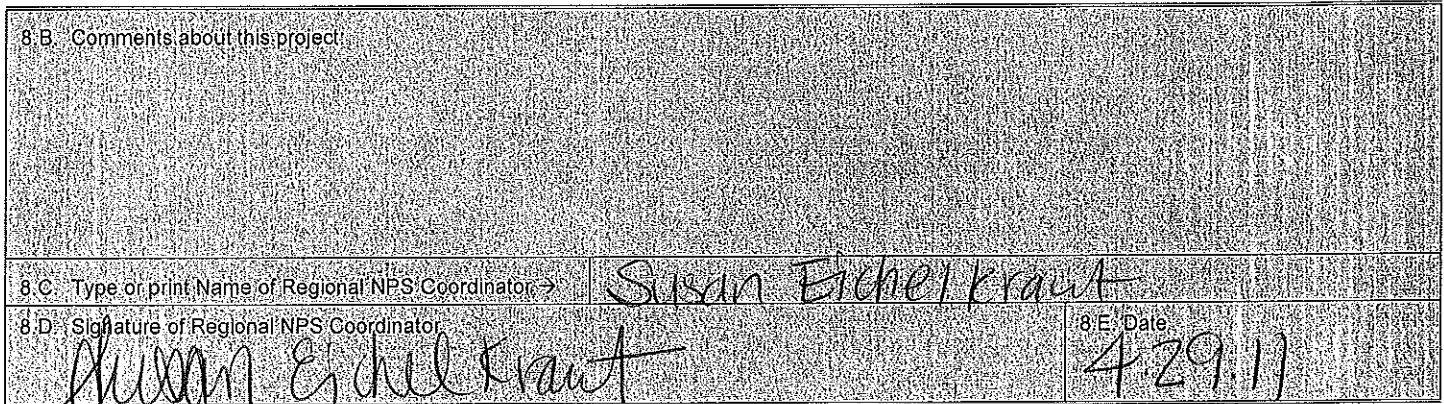 8.B. Comments about this project:
8.C. Type or print Name of Regional NPS Coordinator → Susan Eichelkraut
8.D. Signature of Regional NPS Coordinator 8.E. Date
Susan Eichelkraut 4.29.11